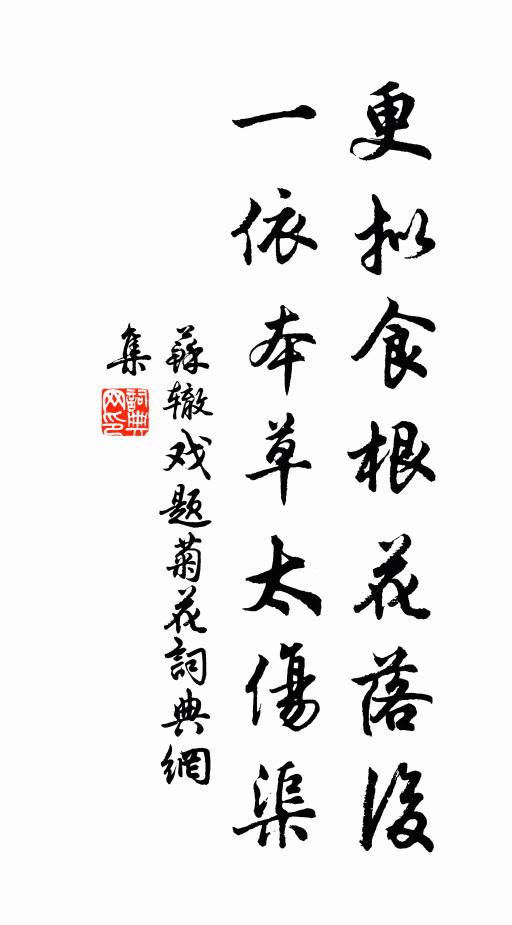 更拟食根花落後
一依本草太傷渠
蘇辙戏题菊花詞典網
集
詞典
网印